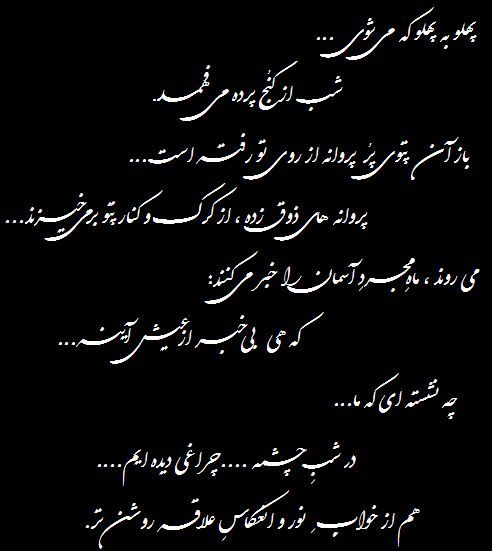 پهلو به پهلو که می شوی ...
شب از کنُج پرده می فهمد.
باز آن پتوی پرُ پروانه از روی تو رفته است...
پروانه های ذوق زده ، از کرک و کنار پتو برمی خیزند...
می روند ، ماهِ مجردِ آسمان را خبر می کنند:
که هی بی خبر از عیش آینه...
چه نشسته ای که ما...
در شبِ چشمه ....چراغی دیده ایم....
هم از خواب ِ نور و انعکاسِ علاقه روشن تر.